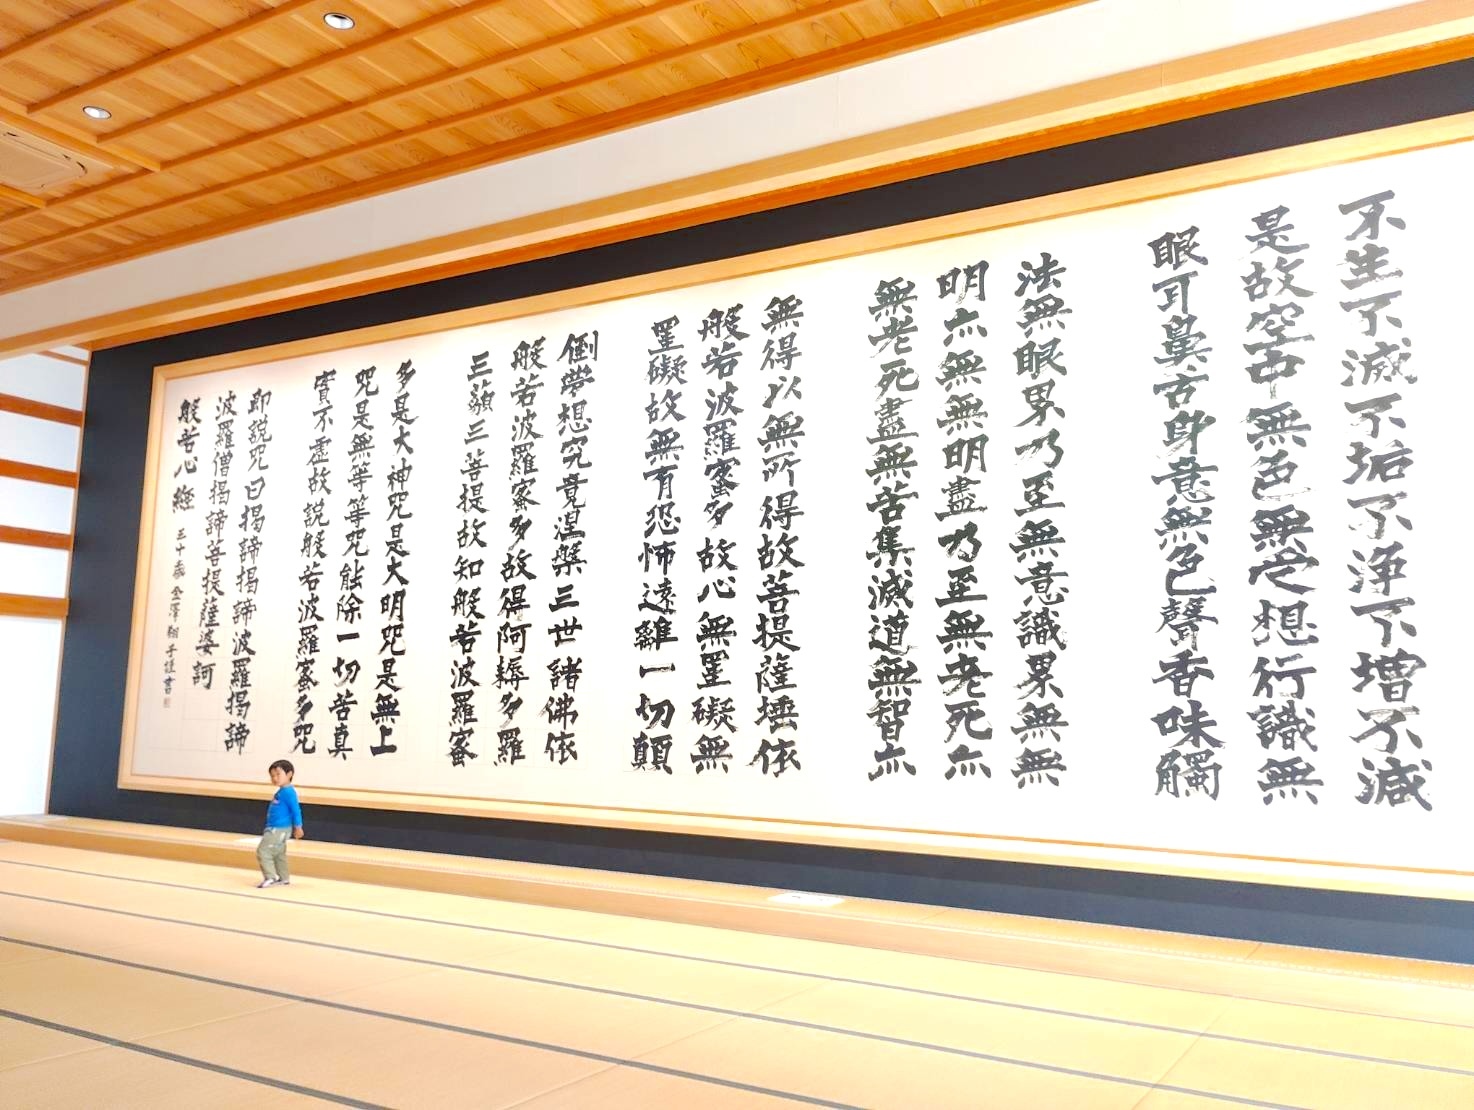 不生不滅不垢不浄不増不減
是故空中無色無受想行識無
眼耳鼻舌身意無色聲香味觸
法無眼界乃至無意識界無無
明亦無無明盡乃至無老死亦
無老死盡無苦集滅道無智亦
無得以無所得故菩提薩埵依
般若波羅蜜多故心無罣礙無
罣礙故無有恐怖遠離一切顛
倒夢想究竟涅槃三世諸佛依
般若波羅蜜多故得阿耨多羅
三藐三菩提故知般若波羅蜜
多是大神咒是大明咒是無上
咒是無等等咒能除一切苦真
實不虚故説般若波羅蜜多咒
即説咒曰揭諦揭諦波羅揭諦
波羅僧揭諦菩提薩婆訶
般若心經 三十歳 金澤翔子謹書